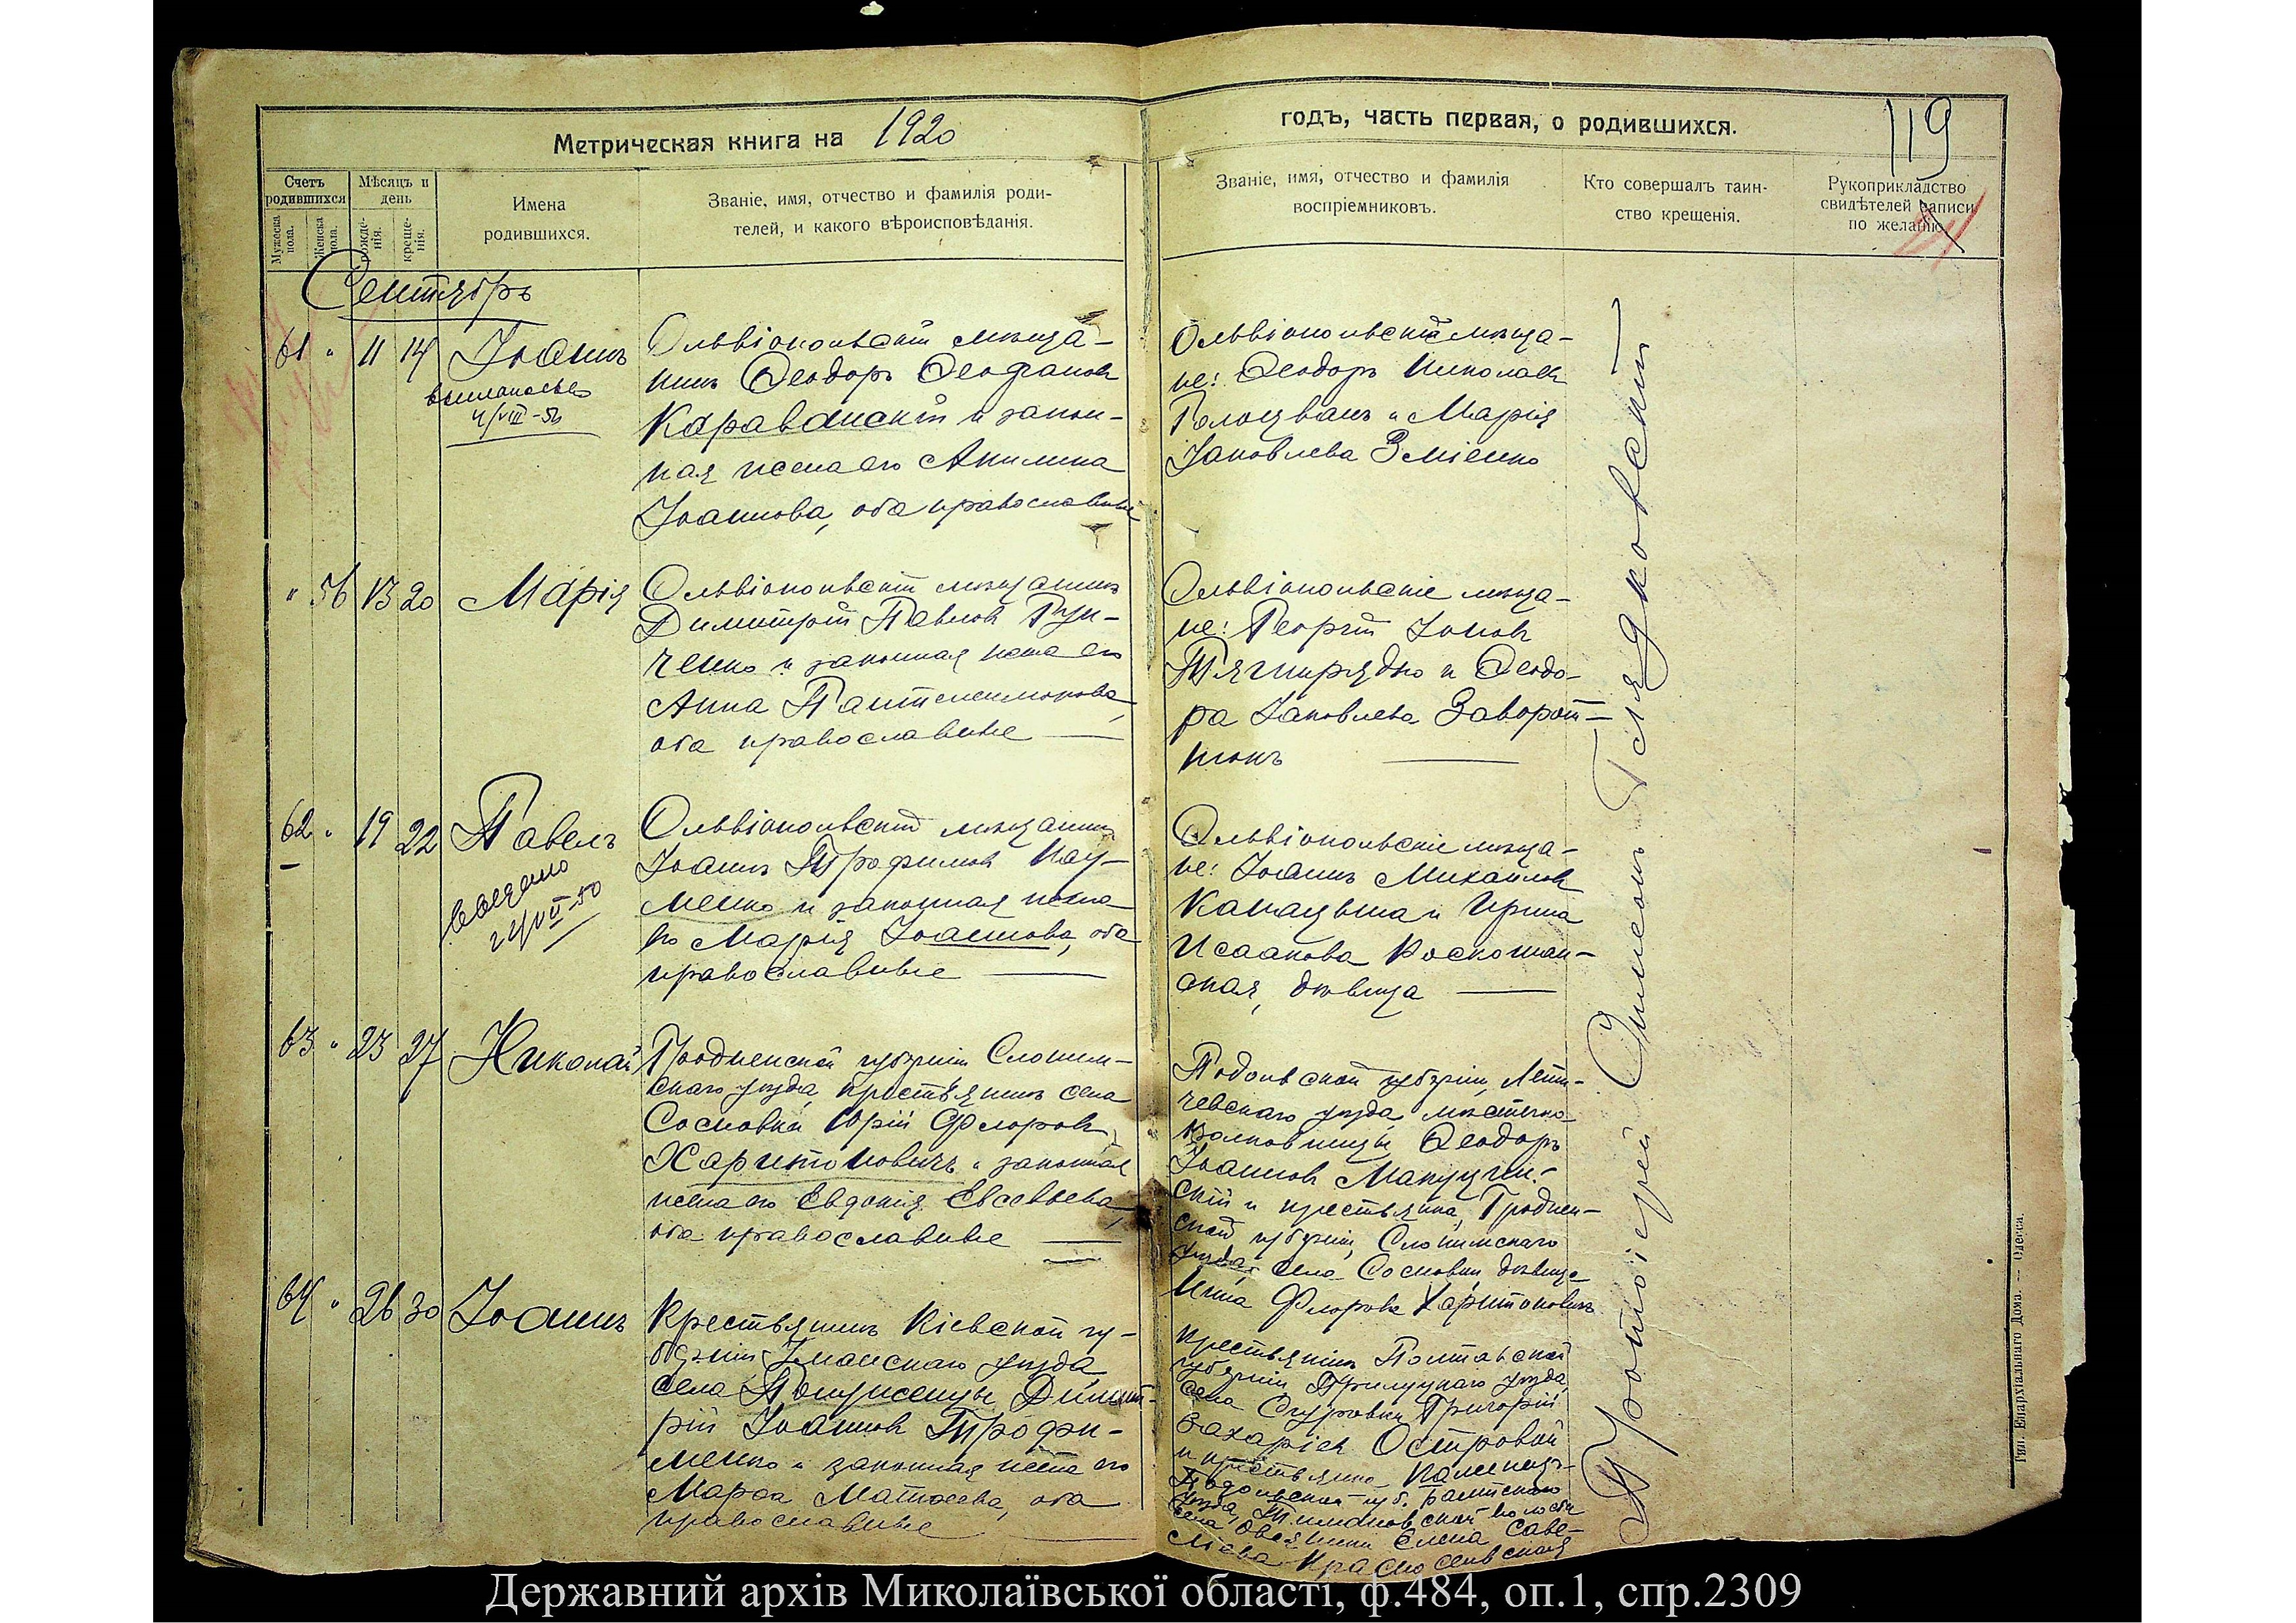 Метрическая книга на 1920
годъ, часть первая, о родившихся.
119
Счетъ родившихся
Мужеска пола.
Женска пола.
Мѣсяцъ и день
рожде-нія.
креще-нія.
Имена
родившихся.
Званіе, имя, отчество и фамилія роди-
телей, и какого вѣроисповѣданія.
Званіе, имя, отчество и фамилія
воспріемниковъ.
Кто совершалъ таин-
ство крещенія.
Рукоприкладство
свидѣтелей записи
по желанію
Сентябрь
61 " 11 14 Іоаннъ
Ольвіопольскій мѣща-
нинъ Ѳеодоръ Ѳеофановъ
Караванскій и закон-
ная жена его Акилина
Іоаннова, оба православные
Ольвіопольскіе мѣща-
не: Ѳеодоръ Николаевъ
Голоцванъ и Марія
Іаковлева Зміенко
" 56 13 20 Марія
Ольвіопольскій мѣщанинъ
Димитрій Павловъ
и законная жена его
Анна Пантелеимонова,
оба православные
Ольвіопольскіе мѣща-
не: Георгій
Тягнирядно и Ѳеодо-
ра Іаковлева Заворот-
нюкъ
62 " 19 22 Павелъ
Ольвіопольскій мѣщанинъ
Іоаннъ Трофимовъ Нау-
менко и законная жена
его Марія Іоаннова, оба
православные
Ольвіопольскіе мѣща-
не: Іоаннъ Михаиловъ
и Ирина
Исаакова Роскошан-
ская, дѣвица
63 " 23 27 Николай
Гродненской губерніи Слоним-
скаго уѣзда крестьянинъ села
Сосновки Юрій Флоровъ
Харитоновичъ и законная
жена его Евдокія Евсевьева,
оба православные
Подольской губерніи, Лети-
чевскаго уѣзда, мѣстечка
Волковинцы Ѳеодоръ
Іоанновъ
и крестьянка Гроднен-
ской губерніи, Слонимскаго
уѣзда, села Сосновки, дѣвица
Нина Флорова Харитоновичъ
64 " 26 30 Іоаннъ
Крестьянинъ Кіевской гу-
берніи Уманскаго уѣзда
села Димит-
рій Іоанновъ Трофи-
менко и законная жена его
Марѳа Матѳеева, оба
православные
крестьянинъ Полтавской
губерніи Прилуцкаго уѣзда,
села Згуровки Григорій
Захаріевъ Островой
и крестьянка
Подольской губ. Балтскаго
уѣзда, волости
села Елена Саве-
ліева Красносельская
Протоіерей Симеонъ Гладковскій
Тип. Епархіальнаго Дома. — Одесса.
Державний архів Миколаївської області, ф.484, оп.1, спр.2309